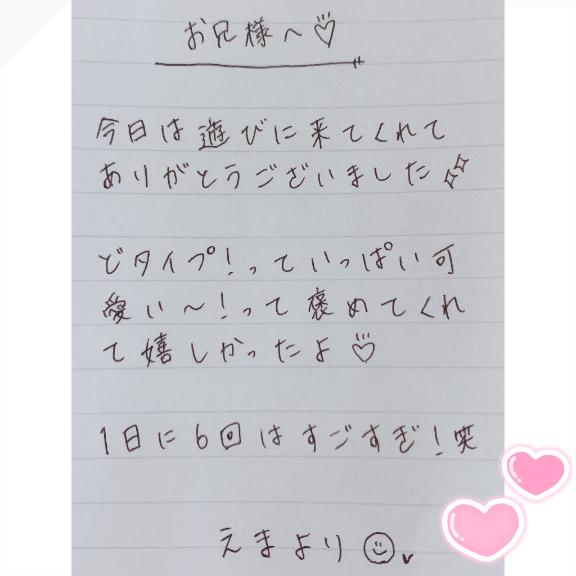 お兄様へ♡
今日は遊びに来てくれて
ありがとうございました✨
どタイプ!っていっぱい可
愛い〜!って褒めてくれ
て嬉しかったよ♡
1日に6回はすごすぎ!笑
えまより☺